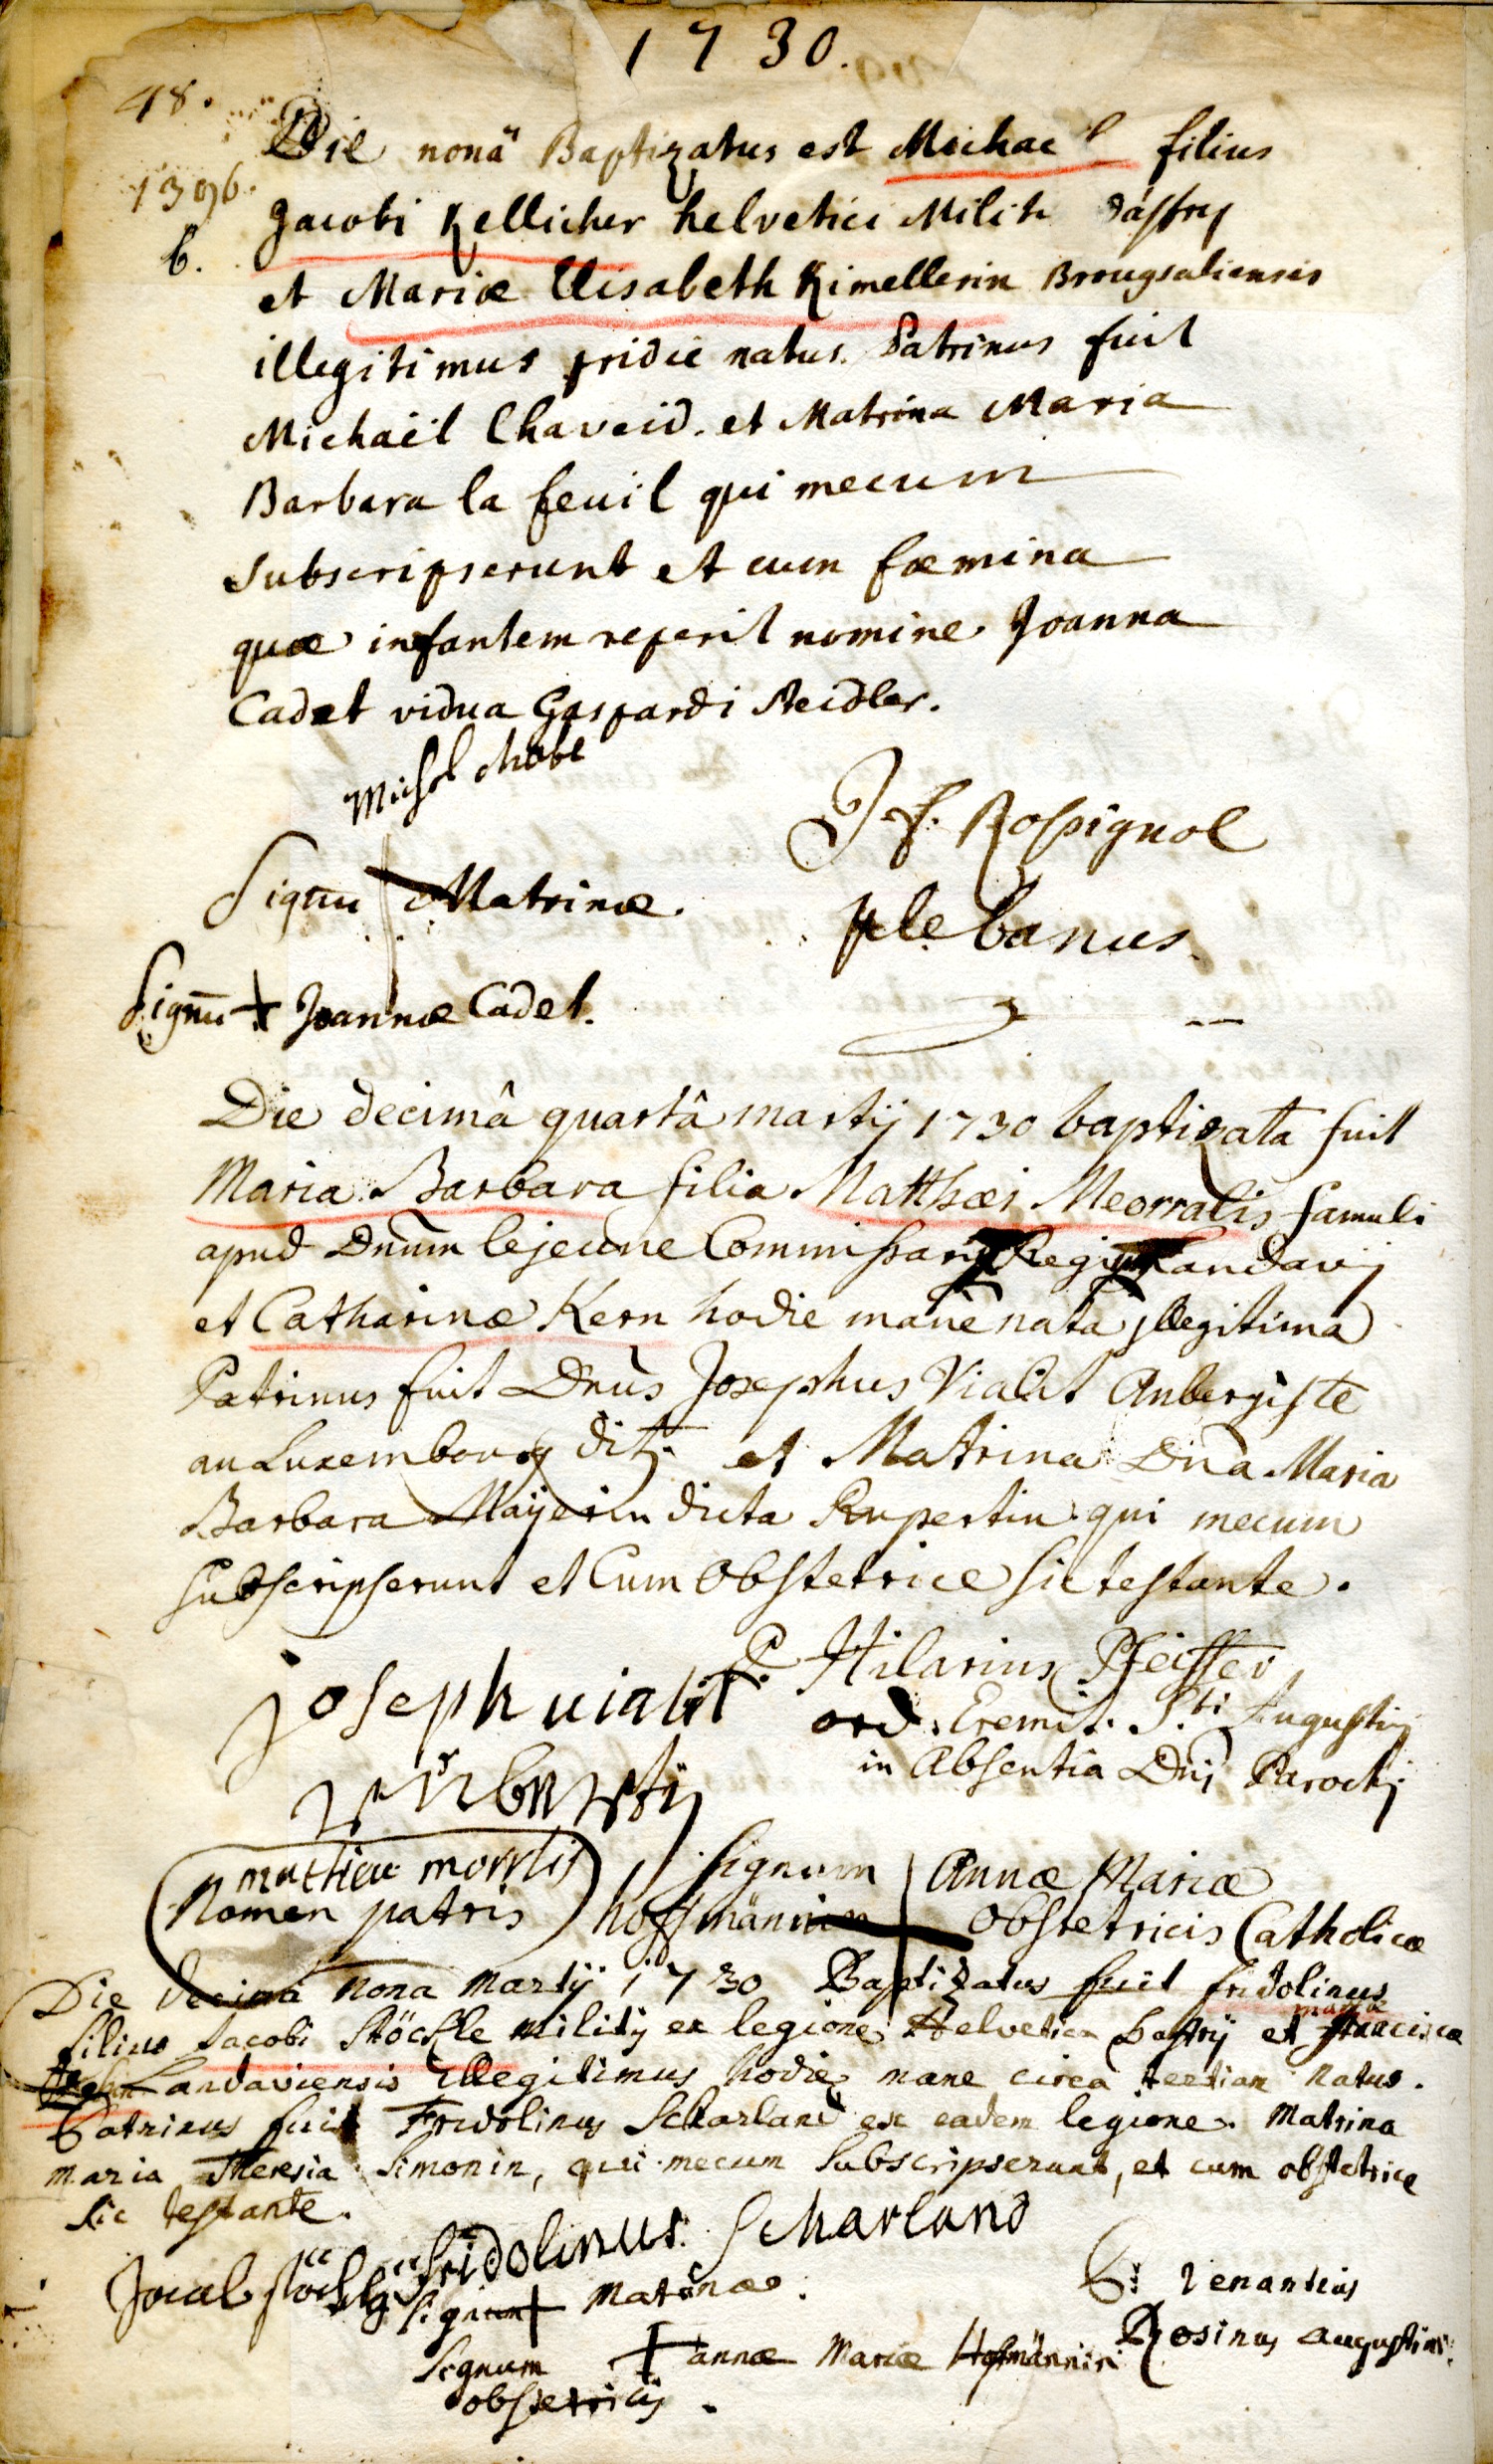 1730.
48.
Die nonâ Baptizatus est Michael filius
1396.
Jacobi Kellicher helvetici Militis
b.
et Mariæ Elisabeth Kimellerin Brougsaliensis
illegitimus pridie natus. Patrinus fuit
Michaël Chaveid. et Matrina Maria
Barbara la feuil qui mecum
subscripserunt et cum fœmina
quæ infantem reperit nomine Joanna
Cadet vidua Gaspardi Reidler.
J. f. Rossignol
Signu Matrinæ.
plebanus.
Signu + Joannæ Cadet.
Die decimâ quartâ martij 1730 baptizata fuit
Maria Barbara filia Matthæi Meorralis famuli
apud Dnum lejeune Commissarij Regij Landavij
et Catharinæ Kern hodie mane nata jllegitima
Patrinus fuit Dnus Josephus Vialit Aubergiste
au Luxembourg dit. et Matrina Dna Maria
Barbara Mayerin dicta Rupertin qui mecum
subscripserunt et Cum Obstetrice sic testante.
P. Hilarius Pfeiffer
joseph uialit
ord. Eremit. Sti Augustinj
in Absentia Dnj Parochj
mathieu morrlis
Nomen patris
Signum Annæ Mariæ
hoffmännin Obstetricis Catholicæ
Die decima nona martij 1730 Baptizatus fuit fridolinus
filius Jacobi Stöckle militis ex legione Helvetica et mariæ franciscæ
Landaviensis illegitimus hodie mane circa tertiam natus.
Patrinus fuit Fridolinus Scharland ex eadem legione. matrina
maria Theresia Simonin, qui mecum subscripserunt, et cum obstetrice
sic testante.
fridolinus Scharland
Jocab stöckle
Signum + Matrinæ.
P. Venantius
Rosinus augustinus
Signum + annæ Mariæ Hofmännin
obstetricis.